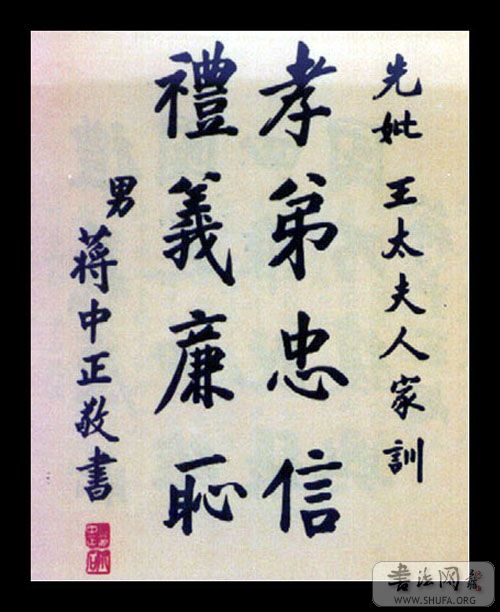 先妣王太夫人家訓
孝弟忠信
禮義廉恥
男蔣中正敬書
书法网
WWW.SHUFA.ORG